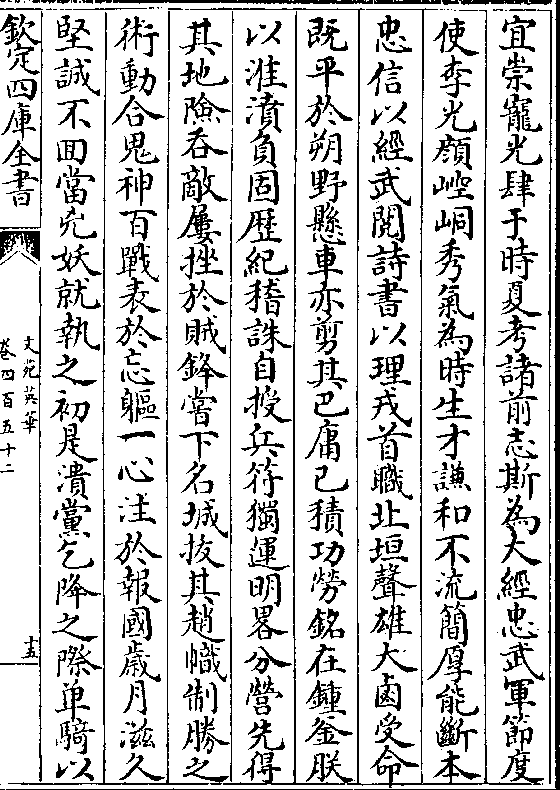 宜崇寵光肆于時夏考諸前志斯為大經忠武軍節度
使李光顔崆峒秀氣為時生才謙和不流簡厚能斷本
忠信以經武閲詩書以理戎首職北垣聲雄大鹵受命
既平於朔野懸車亦剪其巴庸已積功勞銘在鍾釜朕
以淮濆負固歴紀稽誅自授兵符獨運明畧分營先得
其地險吞敵屢挫於賊鋒嘗下名城拔其趙幟制勝之
術動合鬼神百戰表於忘軀一心注於報國歳月滋久
堅誠不囬當兇妖就執之初是潰黨乞降之際单騎以
欽定四庫全書
文苑英華
卷四百五十二
十五